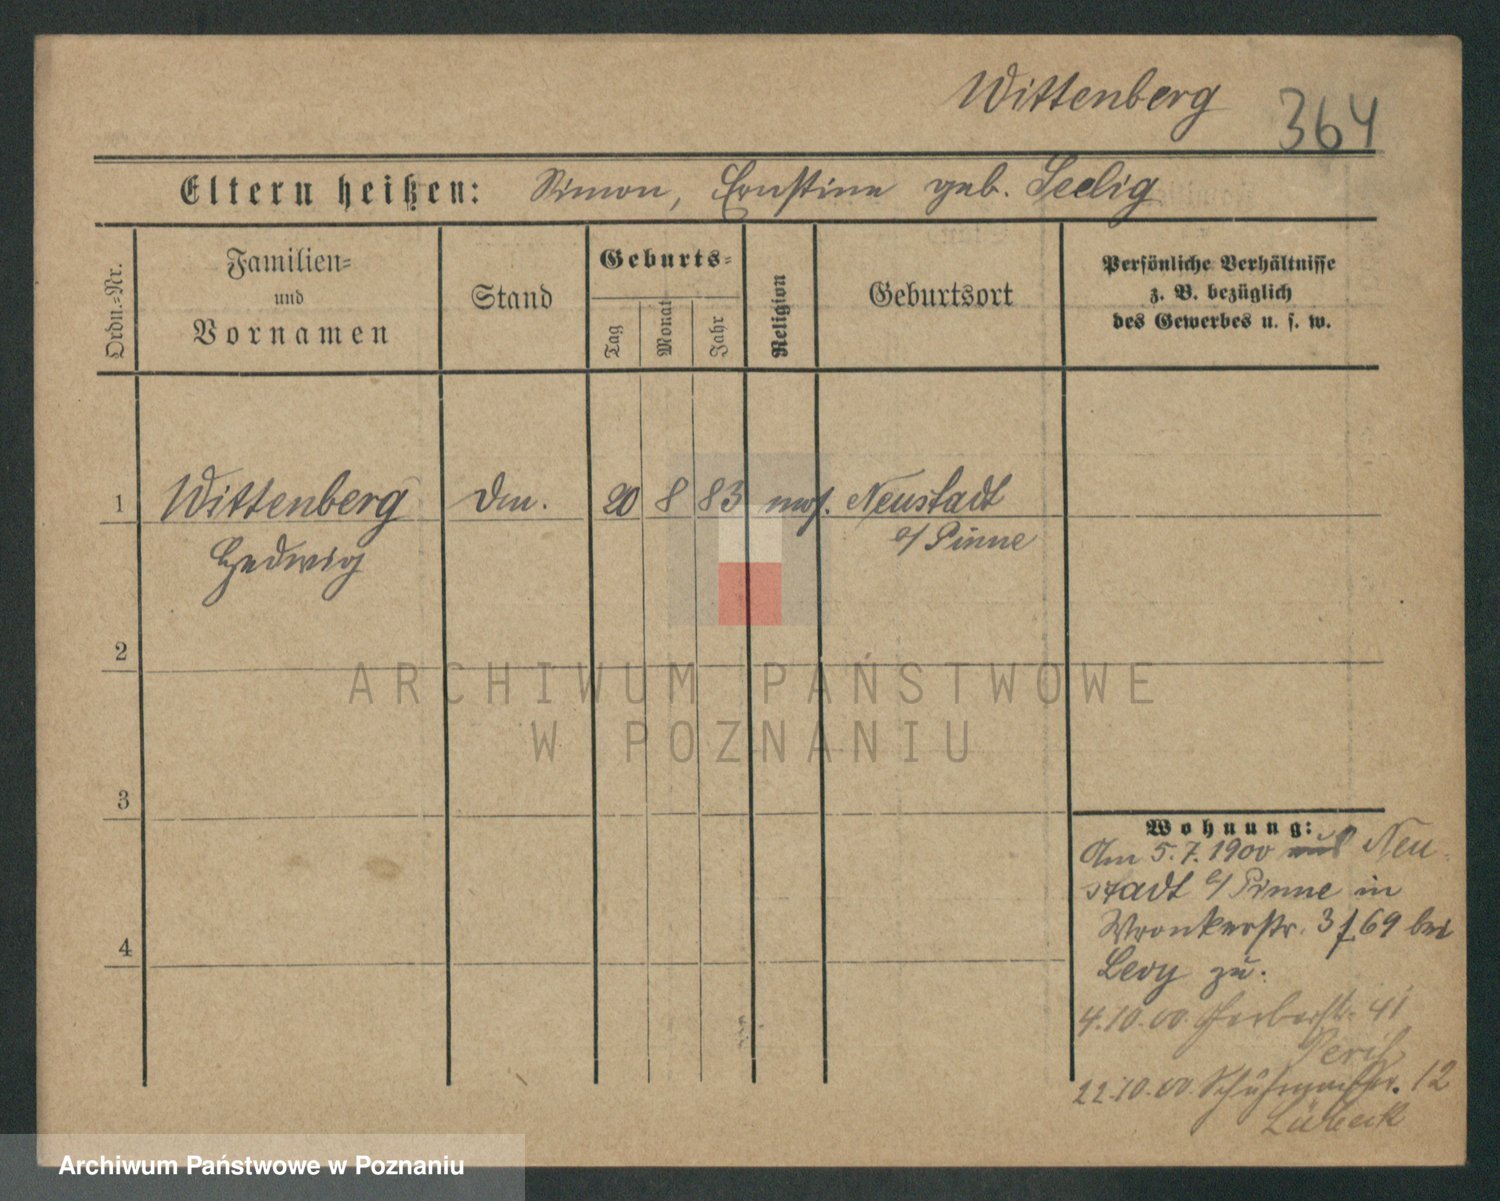 Wittenberg 364
Eltern heißen: Simon, Ernstine geb. Seelig
Ordn.-Nr.
Familien-
und
Vornamen
Stand
Geburts-
Tag
Monat
Jahr
Religion
Geburtsort
Persönliche Verhältnisse
z. B. bezüglich
des Gewerbes u. s. w.
1 Wittenberg 20 8 83 mos. Neustadt
Hedwig
a/ Pinne
2
3
4
Wohnung:
Am 5.7.1900 aus Neu-
stadt a/ Pinne in
Wronkerstr. 3 69 bei
Levy zu.
4.10.00. Gerberstr. 41
22.10.00. Schuhmacherstr. 12
Lübeck
ARCHIWUM PAŃSTWOWE
W POZNANIU
Archiwum Państwowe w Poznaniu